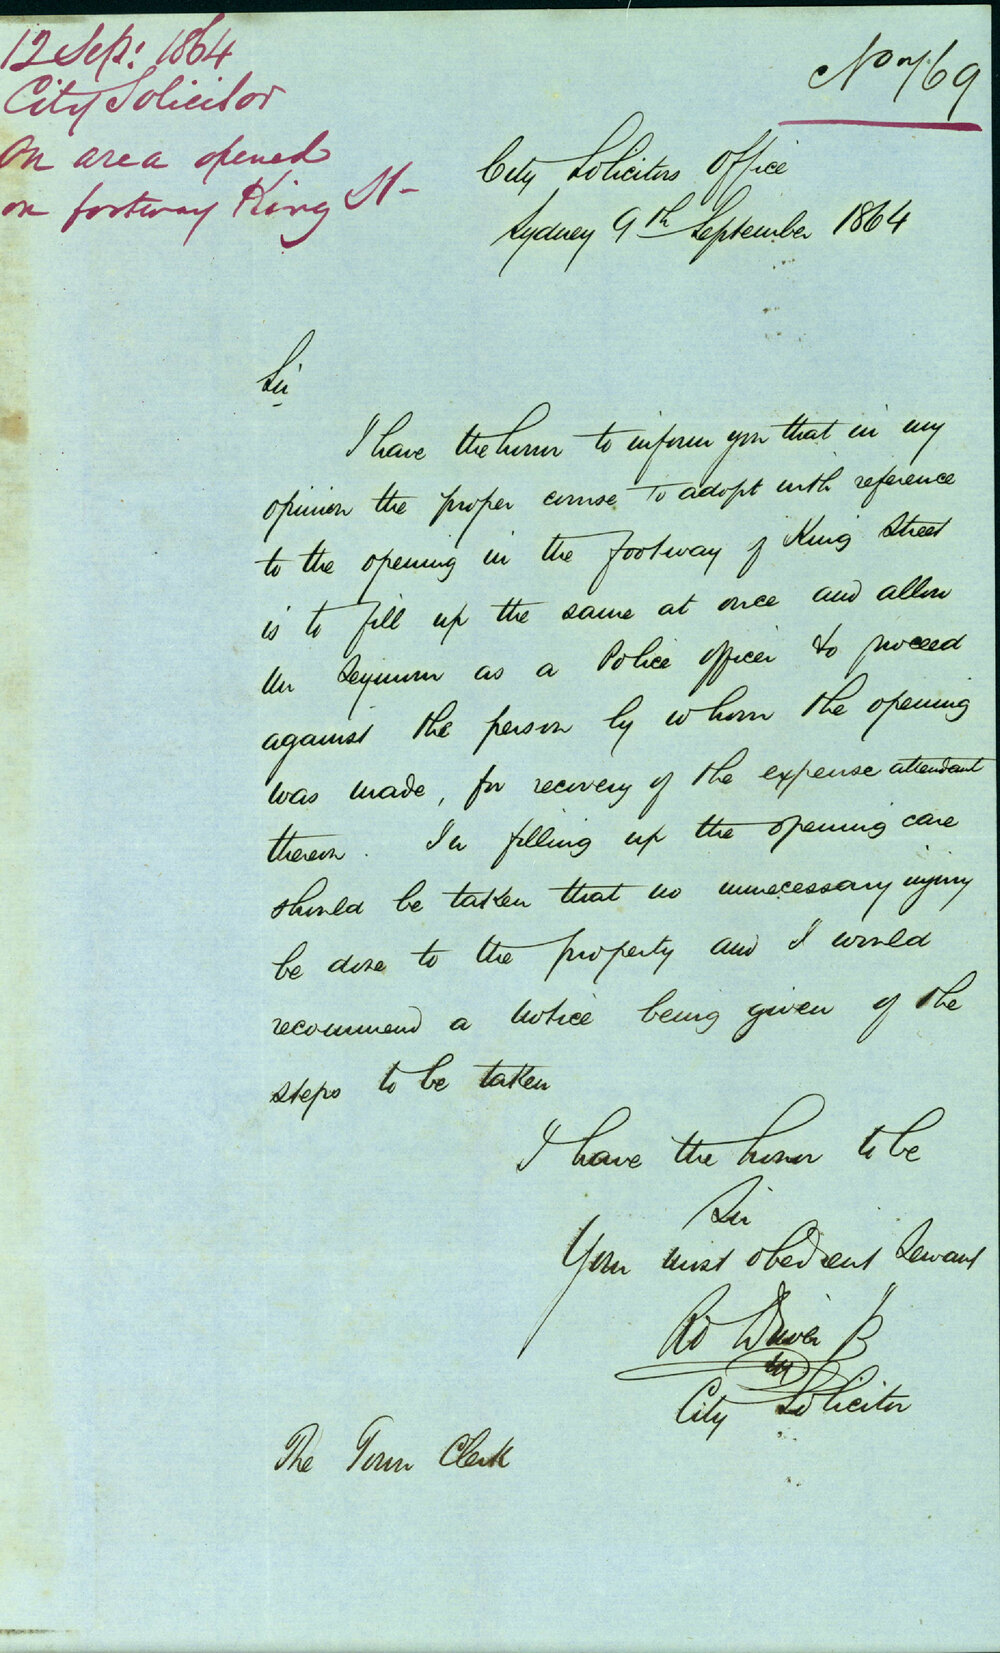 12 Sep: 1864
City Solicitor
On area opened
on footway King St
No 769
City Solicitors Office
Sydney 9th September 1864
Sir
I have the honor to inform you that in my
opinion the proper course to adopt with reference
to the opening in the footway of King Street
is to fill up the same at once and allow
Mr Seymour as a Police officer to proceed
against the person by whom the opening
was made, for recovery of the expense attendant
thereon. In filling up the opening care
should be taken that no unnecessary injury
be done to the property and I would
recommend a notice being given of the
steps to be taken
I have the honor to be
Sir
Your most obedient Servant
Rd Driver Jr
City Solicitor
The Town Clerk